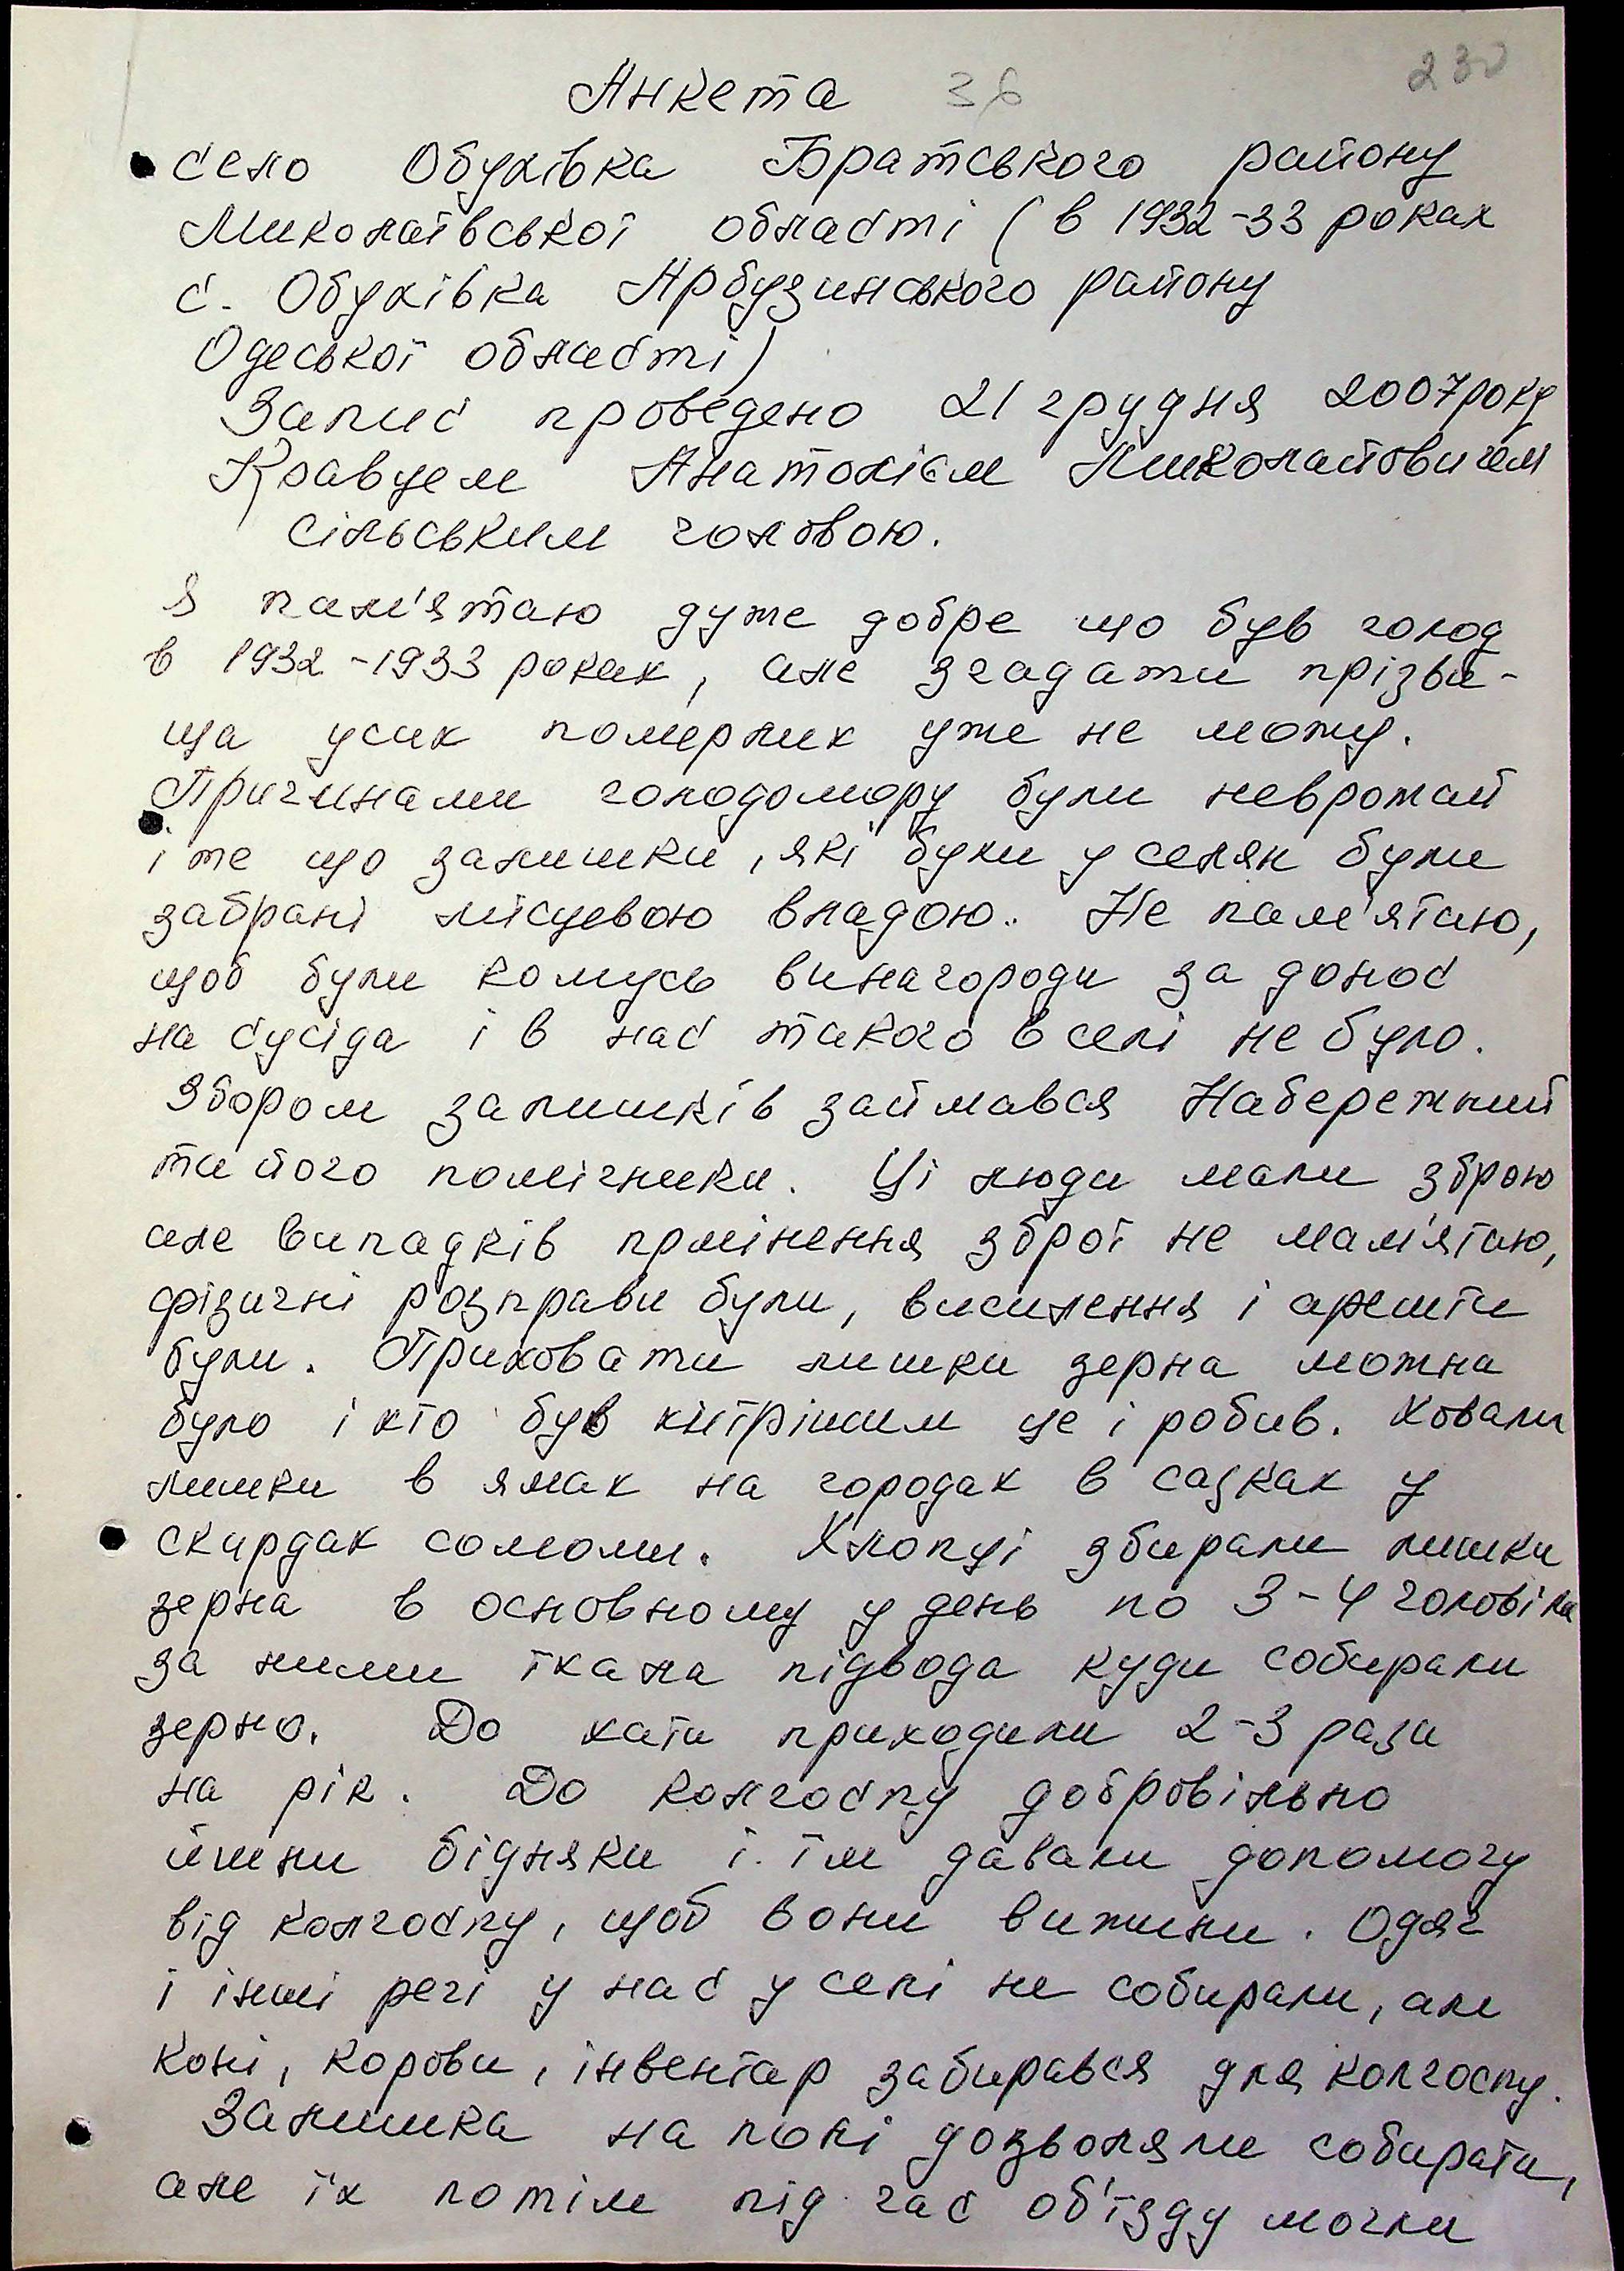 Анкета 36 230
село Обухівка Братського району
Миколаївської області (в 1932-33 роках
с. Обухівка Арбузинського району
Одеської області)
Запис проведено 21 грудня 2007 року
Кравцем Анатолієм Миколайовичем
сільським головою.
Я пам'ятаю дуже добре що був голод
в 1932-1933 роках, але згадати прізви-
ща усих померлих уже не можу.
Причинами голодомору були неврожай
і те що залишки, які були у селян були
забрані місцевою владою. Не пам'ятаю,
щоб були комусь винагороди за донос
на сусіда і в нас такого в селі не було.
Збором залишків займався Набережний
та його помічники. Ці люди мали зброю
але випадків примінення зброї не мам'ятаю,
фізичні розправи були, висилення і арешти
були. Приховати лишки зерна можна
було і хто був хитрішим це і робив. Ховали
лишки в ямах на городах в садках у
скирдах соломи. Хлопці збирали лишки
зерна в основному у день по 3-4 чоловіка
за ними їхала підвода куди собирали
зерно. До хати приходили 2-3 рази
на рік. До колгоспу добровільно
йшли бідняки і їм давали допомогу
від колгоспу, щоб вони вижили. Одяг
і інші речі у нас у селі не собирали, але
коні, корови, інвентар забирався для колгоспу.
Залишка на полі дозволяли собирати,
але їх потім під час об'їзду могли